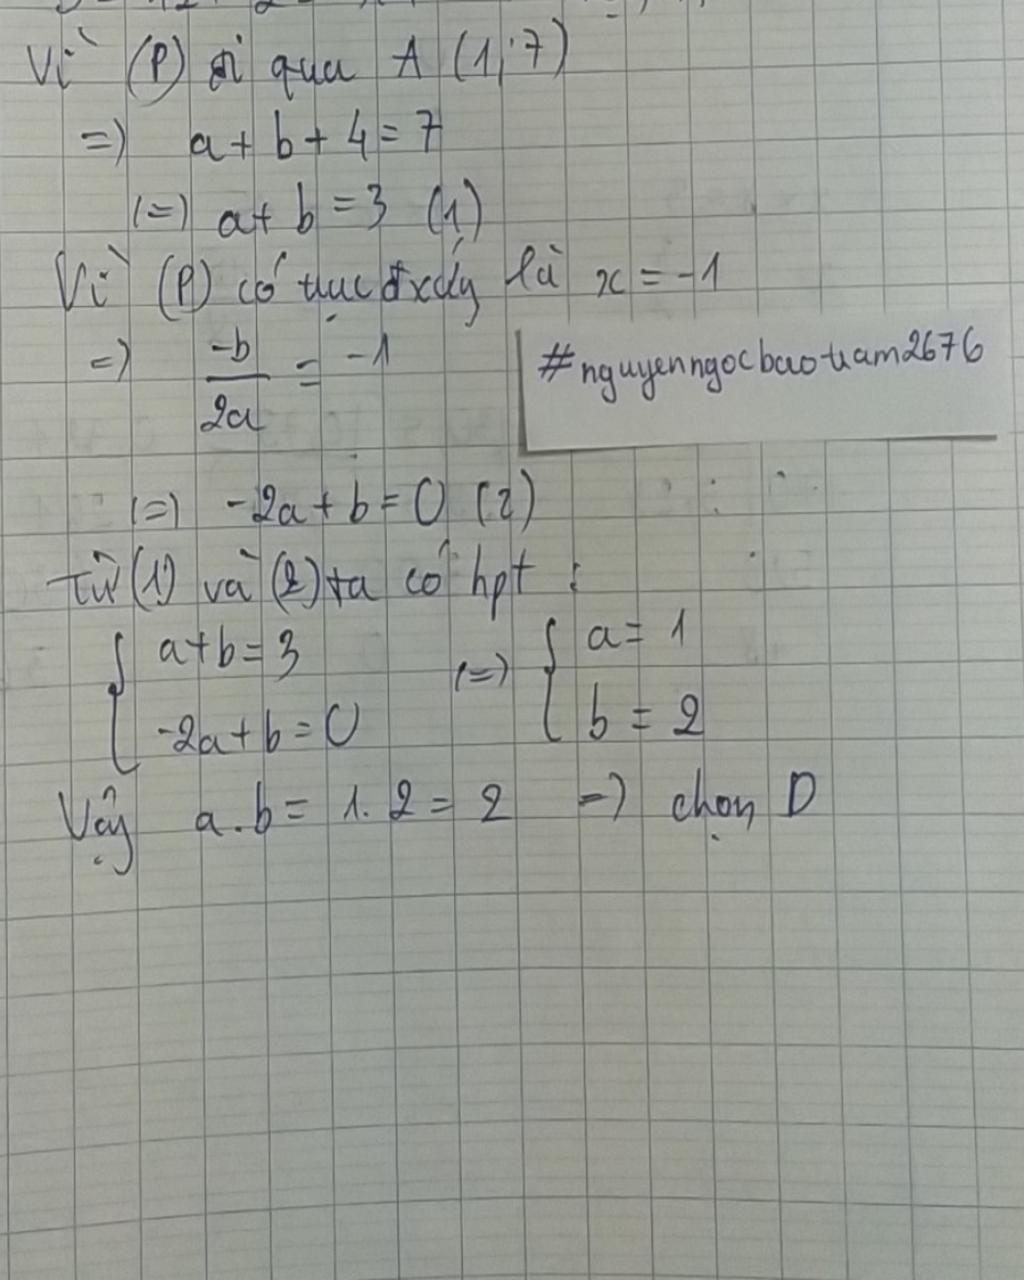 Vì (P) đi qua A (1;7)
=) a + b + 4 = 7
(=) a + b = 3 (1)
Vì (P) có trục đxứg là x = -1
=) -b/2a = -1
#nguyenngocbaotram2676
(=) -2a + b = 0 (2)
Từ (1) và (2) ta có hpt :
{ a+b = 3 (=) { a = 1
-2a + b = 0 b = 2
Vậy a.b = 1.2 = 2 =) chọn D